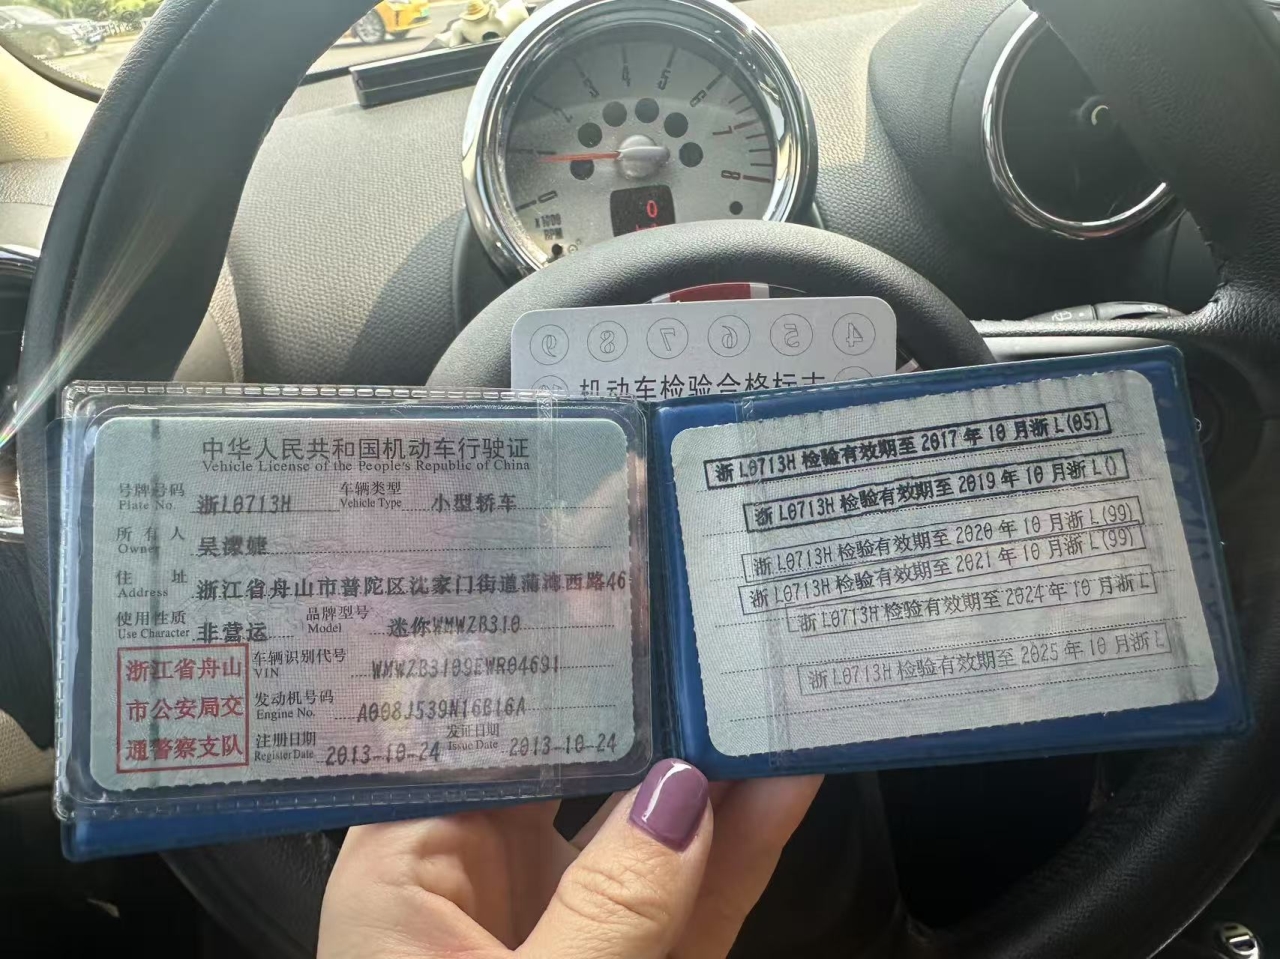 1 2 3 4 5 6 7 8
0
X 1000
RPM
0
9 8 7 6 5 4
机动车检验合格标志
中华人民共和国机动车行驶证
Vehicle License of the People's Republic of China
号牌号码 浙L0713H 车辆类型 小型轿车
Plate No. Vehicle Type
所有人 吴
Owner
住址 浙江省舟山市普陀区沈家门街道蒲湾西路46
Address
使用性质 非营运 品牌型号 迷你WMWZB310
Use Character Model
浙江省舟山
市公安局交
通警察支队
车辆识别代号 WMWZB3109EWR04691
VIN
发动机号码 A008J539N16B16A
Engine No.
注册日期 2013-10-24 发证日期 2013-10-24
Register Date Issue Date
浙L0713H 检验有效期至 2017 年 10 月浙 L(05)
浙L0713H 检验有效期至 2019 年 10 月浙 L()
浙L0713H 检验有效期至 2020 年 10 月浙 L(99)
浙L0713H 检验有效期至 2021 年 10 月浙 L(99)
浙L0713H 检验有效期至 2024 年 10 月浙 L
浙L0713H 检验有效期至 2025 年 10 月浙 L